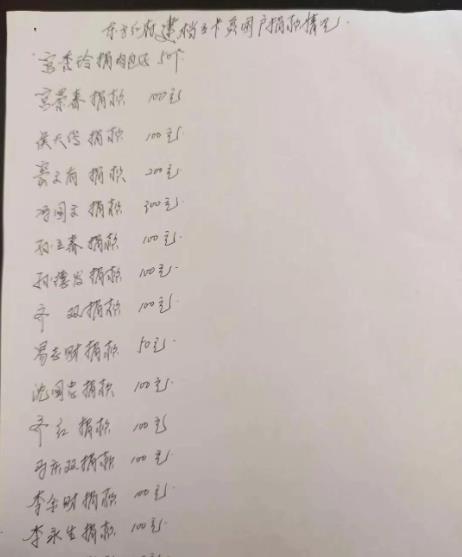 东方红村建档立卡贫困户捐款情况
宫秀玲捐肉包子50个
宫景春捐款 100元
侯天信捐款 100元
裴文有捐款 200元
冯国文捐款 300元
孙立春捐款 100元
孙德发捐款 100元
齐 双捐款 100元
易志财捐款 50元
沈国忠捐款 100元
齐红捐款 100元
马庆双捐款 100元
李金财捐款 100元
李永生捐款 100元